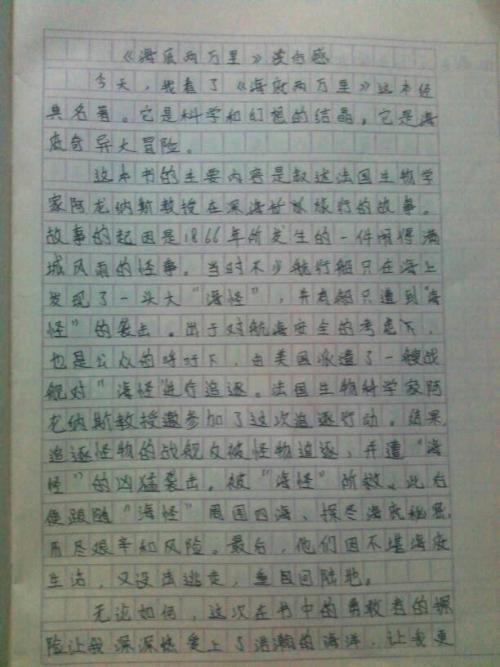 《海底两万里》读后感
今天，我看了《海底两万里》这本经
典名著。它是科学和幻想的结晶，它是海
底奇异大冒险。
这本书的主要内容是叙述法国生物学
家阿龙纳斯教授在深海旅行的故事。
故事的起因是1866年所发生的一件闹得满
城风雨的怪事。当时不少航行船只在海上
发现了一头大“海怪”，并有船只遭到“海
怪”的袭击。出于对航海安全的考虑下，
也是公众的呼吁下，由美国派遣了一艘战
舰对“海怪”进行追逐。法国生物科学家阿
龙纳斯教授邀参加了这次追逐行动。结果
追逐怪物的战舰反被怪物追逐，并遭“海
怪”的凶猛袭击。被“海怪”所救。此后
便跟随“海怪”周围四海、探尽海底秘密，
历尽艰辛和风险。最后，他们因不堪海底
生活，又设法逃走，重回陆地。
无论如何，这次在书中的勇敢者的探
险让我深深热爱上了浩瀚的海洋，让我更